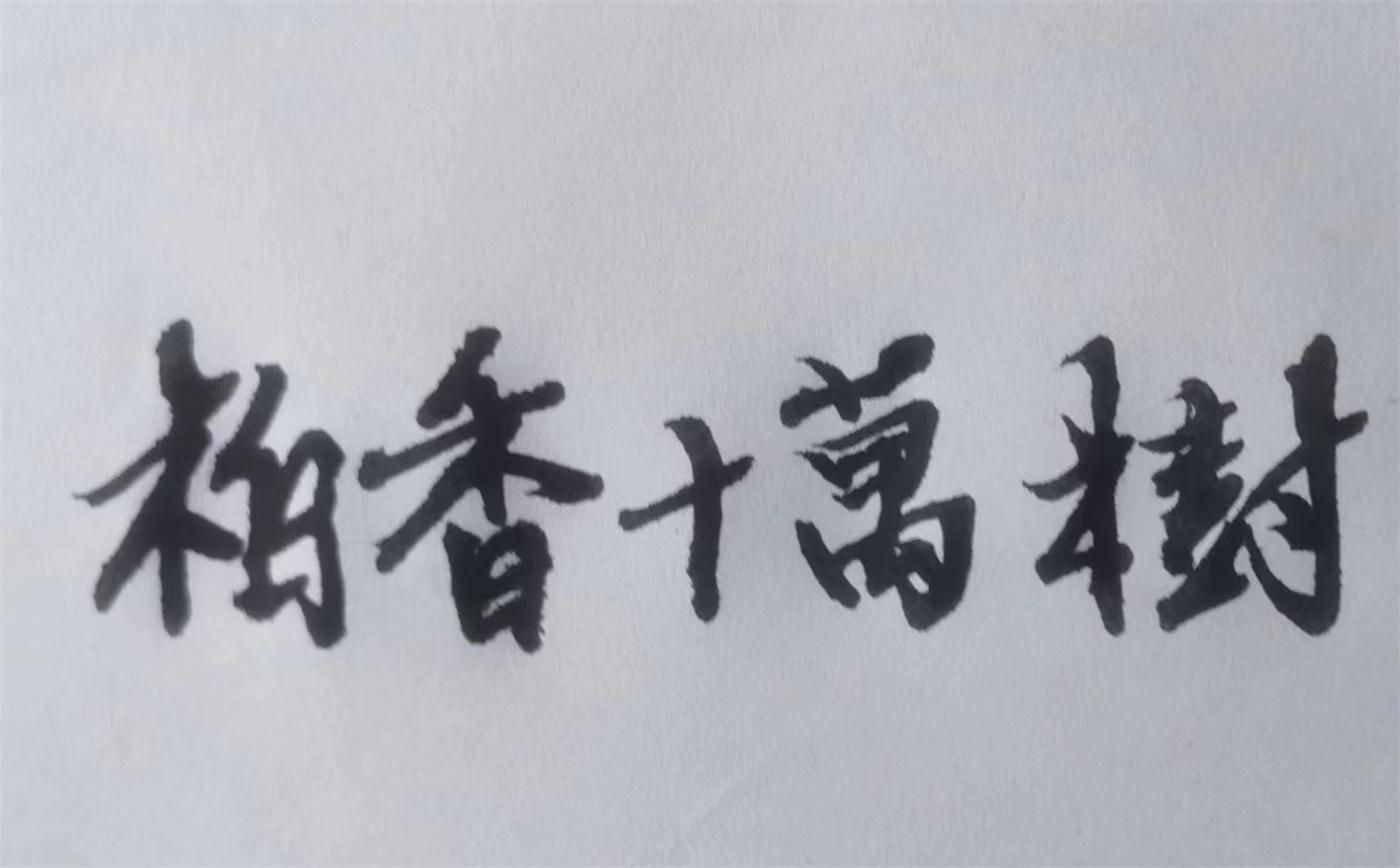 柏香十萬樹